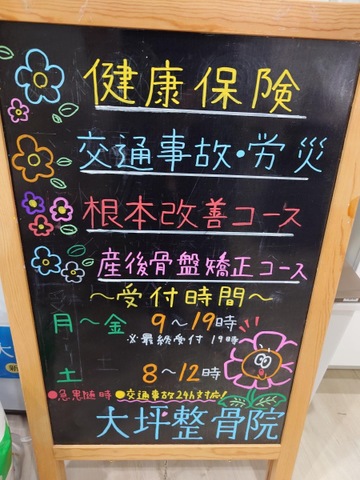 健康保険
交通事故・労災
根本改善コース
産後骨盤矯正コース
〜受付時間〜
月〜金 9〜19時
※最終受付 19時
土 8〜12時
●急患随時 ●交通事故24h対応!
大坪整骨院